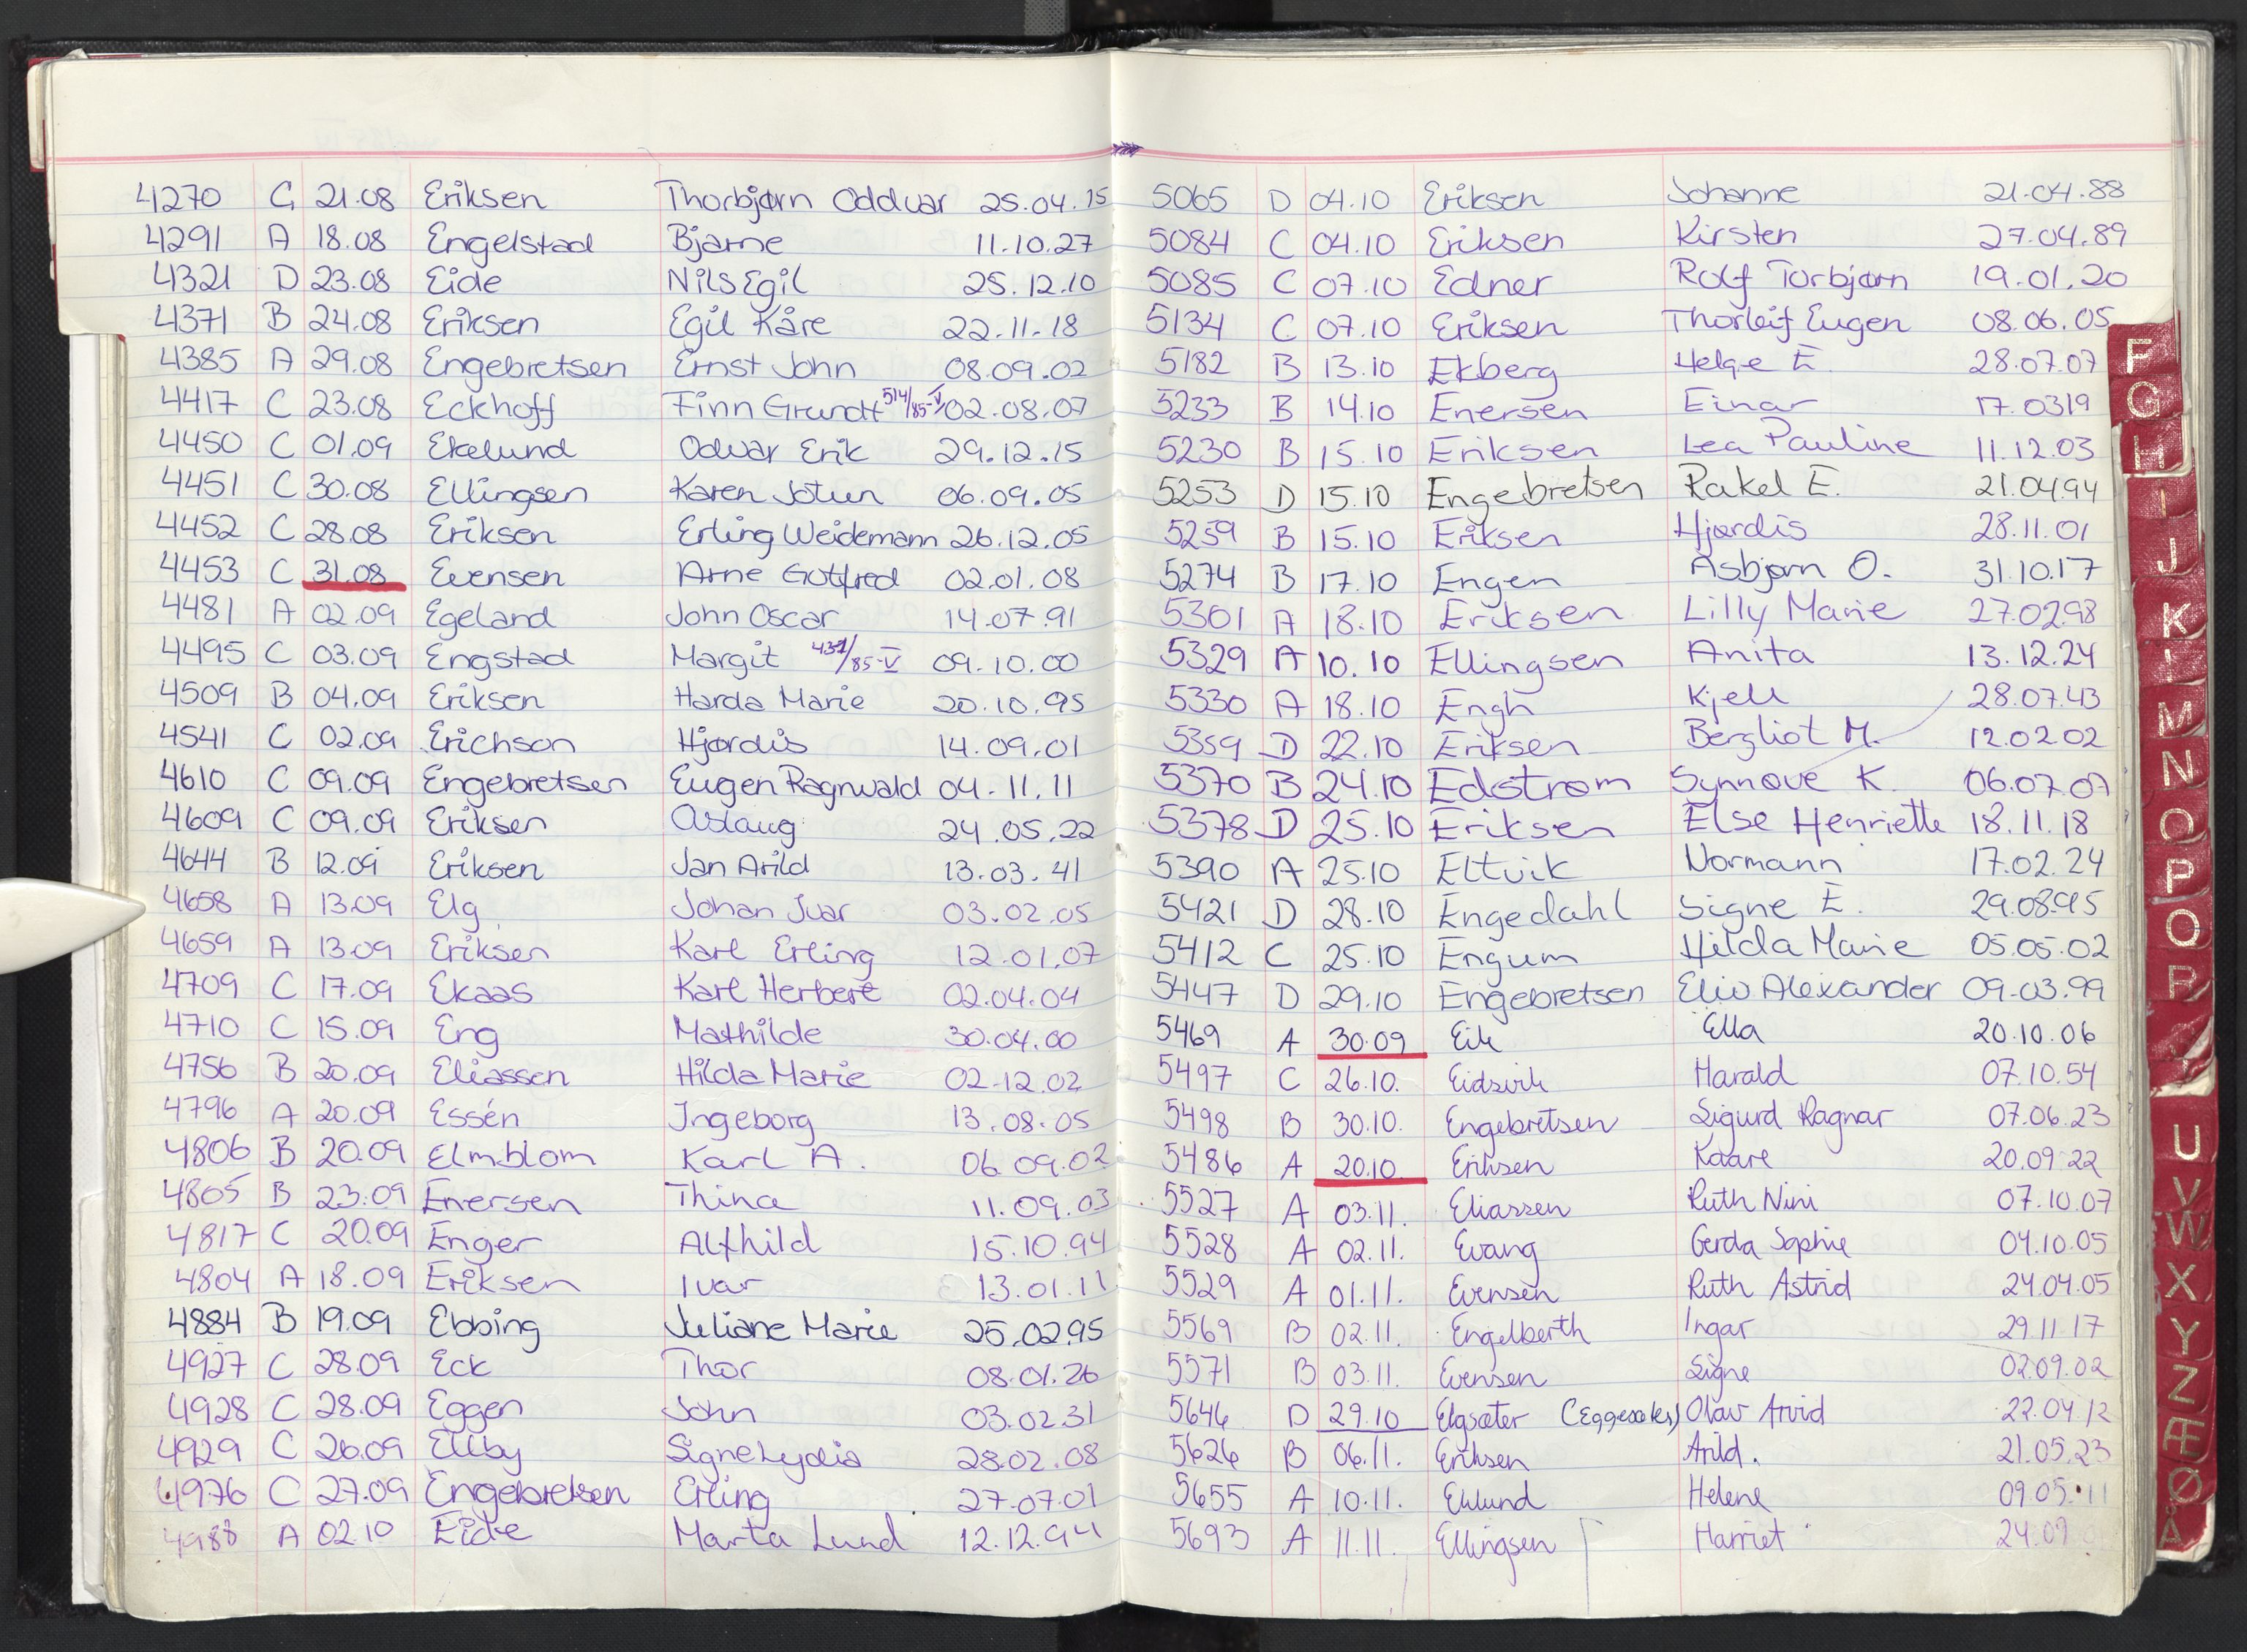 4270 C 21.08 Eriksen Thorbjørn Oddvar 25.04.15
4291 A 18.08 Engelstad Bjarne 11.10.27
4321 D 23.08 Eide Nils Egil 25.12.10
4371 B 24.08 Eriksen Egil Kåre 22.11.18
4385 A 29.08 Engebretsen Ernst John 08.09.02
4417 C 23.08 Eckhoff Finn Grundt 514/85-V 02.08.07
4450 C 01.09 Ekelund Odvar Erik 29.12.15
4451 C 30.08 Ellingsen Karen Jotun 06.09.05
4452 C 28.08 Eriksen Erling Weidemann 26.12.05
4453 C 31.08 Evensen Arne Gotfred 02.01.08
4481 A 02.09 Egeland John Oscar 14.07.91
4495 C 03.09 Engstad Margit /85-V 09.10.00
4509 B 04.09 Eriksen Harda Marie 20.10.95
4541 C 02.09 Erichson Hjørdis 14.09.01
4610 C 09.09 Engebretsen Eugen Ragnvald 04.11.11
4609 C 09.09 Eriksen Aslaug 24.05.22
4644 B 12.09 Eriksen Jan Arild 13.03.41
4658 A 13.09 Elg Johan Ivar 03.02.05
4659 A 13.09 Eriksen Karl Erling 12.01.07
4709 C 17.09 Ekaas Karl Herbert 02.04.04
4710 C 15.09 Eng Mathilde 30.04.00
4756 B 20.09 Eliassen Hilda Marie 02.12.02
4796 A 20.09 Essén Ingeborg 13.08.05
4806 B 20.09 Elmblom Karl A. 06.09.02
4805 B 23.09 Enersen Thina 11.09.03
4817 C 20.09 Enger Alfhild 15.10.94
4804 A 18.09 Eriksen Ivar 13.01.11
4884 B 19.09 Ebbing Juliane Marie 25.02.95
4927 C 28.09 Eck Thor 08.01.26
4928 C 28.09 Eggen John 03.02.31
4929 C 26.09 Ellby Signe Lydia 28.02.08
4976 C 27.09 Engebretsen Erling 27.07.01
4988 A 02.10 Eide Marta Lund 12.12.94
5065 D 04.10 Eriksen Johanne 21.04.88
5084 C 04.10 Eriksen Kirsten 27.04.89
5085 C 07.10 Edner Rolf Torbjørn 19.01.20
5134 C 07.10 Eriksen Thorleif Eugen 08.06.05
5182 B 13.10 Ekberg Helge E. 28.07.07
5233 B 14.10 Enersen Einar 17.0319
5230 B 15.10 Eriksen Lea Pauline 11.12.03
5253 D 15.10 Engebretsen Rakel E. 21.04.94
5259 B 15.10 Eriksen Hjørdis 28.11.01
5274 B 17.10 Engen Asbjørn O. 31.10.17
5301 A 18.10 Eriksen Lilly Marie 27.02.98
5329 A 10.10 Ellingsen Anita 13.12.24
5330 A 18.10 Engh Kjell 28.07.43
5359 D 22.10 Eriksen Bergliot M. 12.02.02
5370 B 24.10 Edstrøm Synnøve K. 06.07.07
5378 D 25.10 Eriksen Else Henriette 18.11.18
5390 A 25.10 Eltvik Normann 17.02.24
5421 D 28.10 Engedahl Signe E. 29.08.95
5412 C 25.10 Engum Hilda Marie 05.05.02
5447 D 29.10 Engebretsen Eliv Alexander 09.03.99
5469 A 30.09 Eik Ella 20.10.06
5497 C 26.10. Eidsvik Harald 07.10.54
5498 B 30.10. Engebretsen Sigurd Ragnar 07.06.23
5486 A 20.10. Eriksen Kaare 20.09.22
5527 A 03.11. Eliassen Ruth Nini 07.10.07
5528 A 02.11. Evang Gerda Sophie 04.10.05
5529 A 01.11. Evensen Ruth Astrid 24.04.05
5569 B 02.11. Engelberth Ingar 29.11.17
5571 B 03.11. Evensen Signe 02.09.02
5646 D 29.10 Elgsæter Olav Arvid 22.04.12
5626 B 06.11. Eriksen Arild. 21.05.23
5655 A 10.11. Eklund Helene 09.05.11
5693 A 11.11. Ellingsen Harriet
F
G
H
I
J
K
L
M
N
O
P
Q
R
U
V
W
X
Y
Z
Æ
Ø
Å